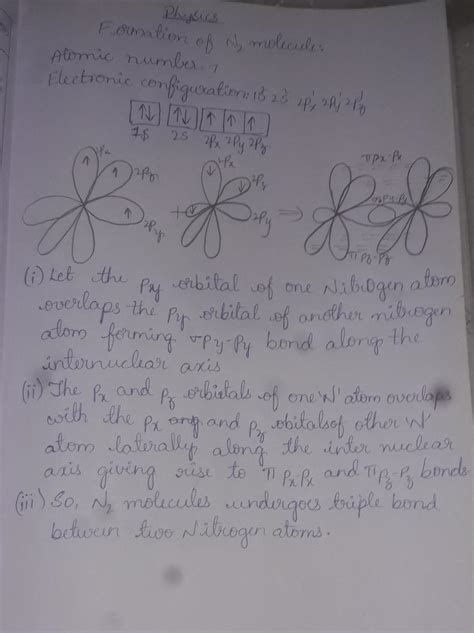 Physics
Formation of N₂ molecule:
Atomic number. 7
Electronic configuration: 1S² 2S² 2Px¹ 2Py¹ 2Pz¹
↑↓ ↑↓ ↑ ↑ ↑
1S 2S 2Px 2Py 2Pz
2Px πPx-Px
2Pz 2Pz
+ ⇒
2Py 2Py
πPz-Pz
(i) Let the Py orbital of one Nitrogen atom
overlaps the Py orbital of another nitrogen
atom forming σPy-Py bond along the
internuclear axis
(ii) The Px and Pz orbitals of one 'N' atom overlaps
with the Px and Pz obitals of other 'N'
atom laterally along the inter nuclear
axis giving rise to π Px Px and π Pz-Pz bonds
(iii) So, N₂ molecules undergoes triple bond
between two Nitrogen atoms.